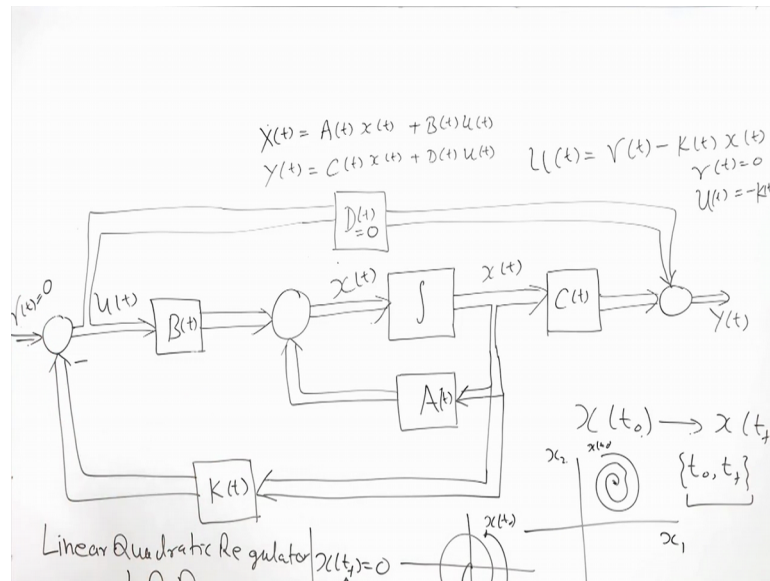 Ẋ(t) = A(t) x(t) + B(t) u(t)
Y(t) = C(t) x(t) + D(t) u(t)
U(t) = r(t) - K(t) x(t)
r(t) = 0
U(t) = -K(t
D(t)
=0
r(t)=0
U(t)
B(t)
ẋ(t)
∫
x(t)
C(t)
Y(t)
−
A(t)
K(t)
x(t₀) → x(t_f
{t₀, t_f}
x₂
x(t₀)
x₁
Linear Quadratic Regulator
x(t_f)=0
x(t₀)
L Q R